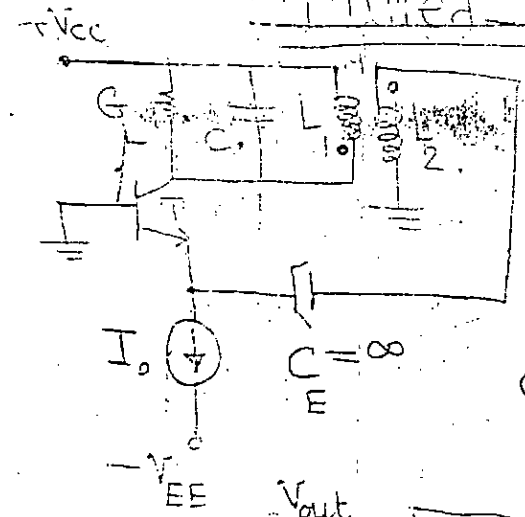 +Vcc
G
C
L1
L2
T
I₀
C_E = ∞
-V_EE
Vout